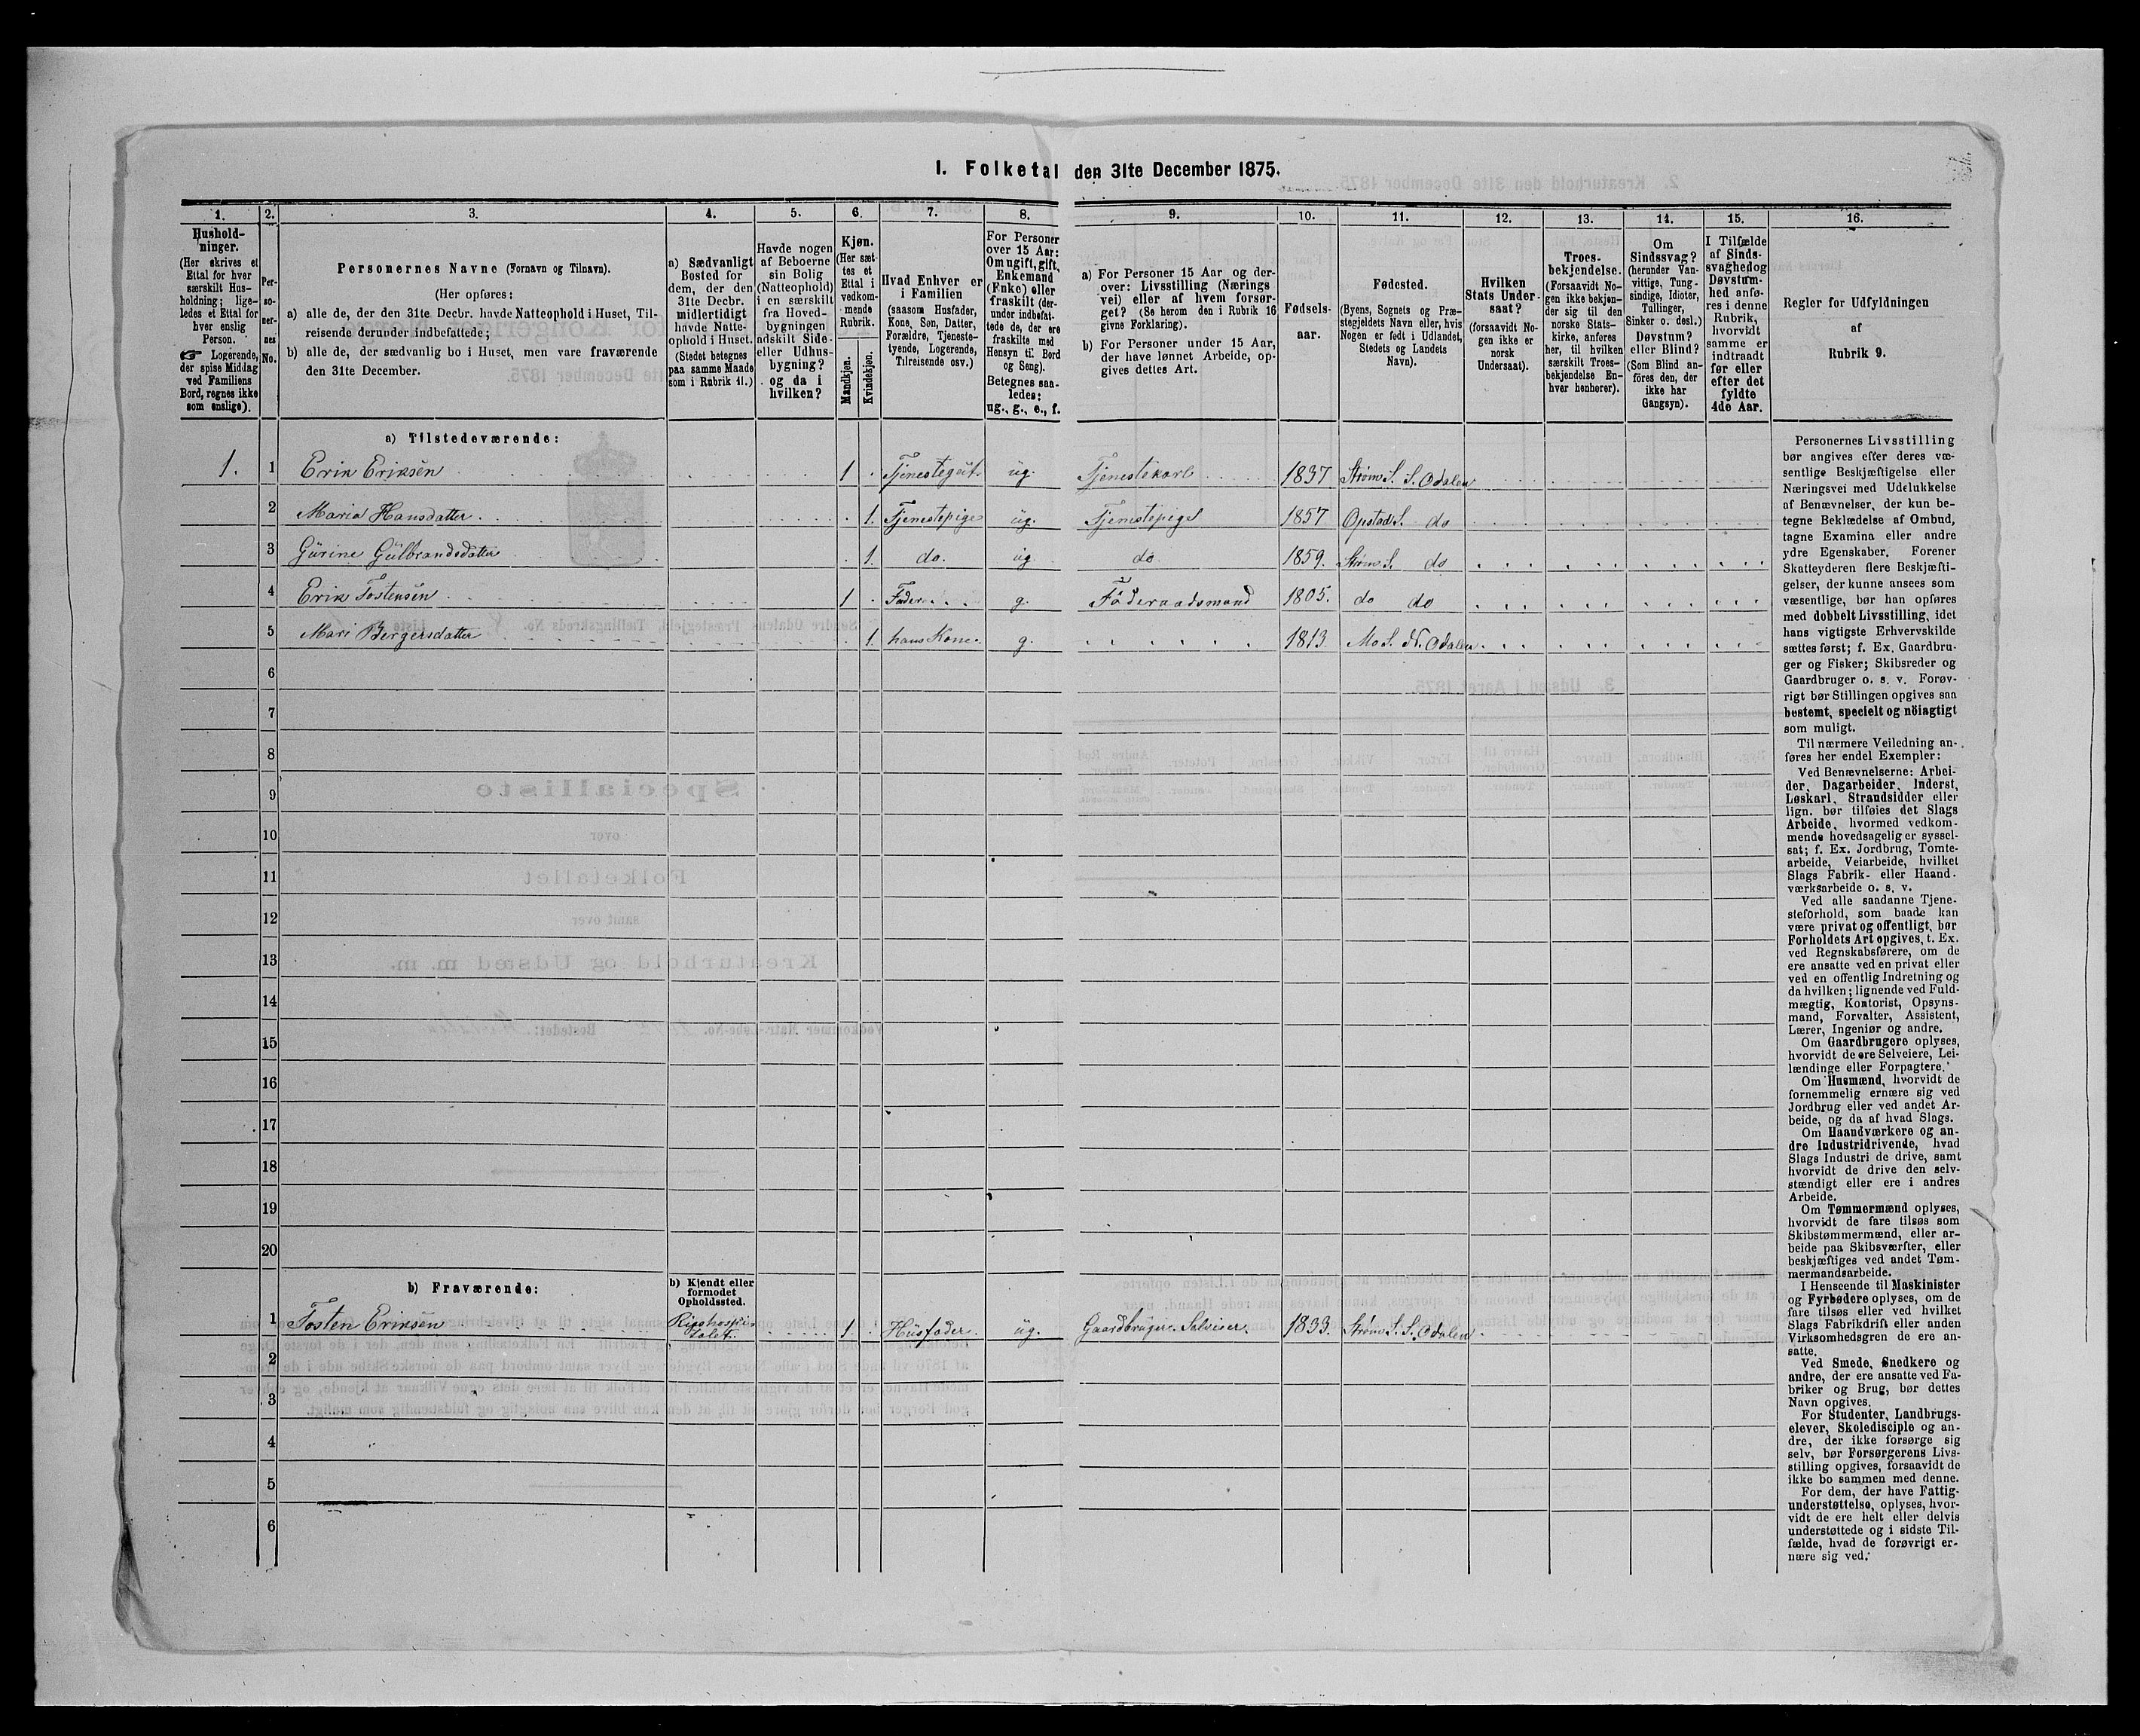 1. Folketal den 31te December 1875.
1.
2.
3.
4.
5.
6.
7.
8.
9.
10.
11.
12.
13.
14.
15.
16.
Hushold-
ninger.
(Her skrives et
Ettal for hver
særskilt Hus-
holdning; lige-
ledes et Ettal for
hver enslig
Person.
☞ Logerende,
der spise Middag
ved Familiens
Bord, regnes ikke
som enslige).
Per-
so-
ner-
nes
No.
Personernes Navne (Fornavn og Tilnavn).
(Her opføres:
a) alle de, der den 31te Decbr. havde Natteophold i Huset, Til-
reisende derunder indbefattede;
b) alle de, der sædvanlig bo i Huset, men vare fraværende
den 31te December.
a) Sædvanligt
Bosted for
dem, der den
31te Decbr.
midlertidigt
havde Natte-
ophold i Huset.
(Stedet betegnes
paa samme Maade
som i Rubrik 11.)
Havde nogen
af Beboerne
sin Bolig
(Natteophold)
i en særskilt
fra Hoved-
bygningen
adskilt Side-
eller Udhus-
bygning?
og da i
hvilken?
Kjøn.
(Her sæt-
tes et
Ettal i
vedkom-
mende
Rubrik.
Mandkjøn.
Kvindekjøn.
Hvad Enhver er
i Familien
(saasom Husfader,
Kone, Søn, Datter,
Forældre, Tjeneste-
tyende, Logerende,
Tilreisende osv.)
For Personer
over 15 Aar:
Om ugift, gift,
Enkemand
(Enke) eller
fraskilt (der-
under indbefat-
tede de, der ere
fraskilte med
Hensyn til Bord
og Seng).
Betegnes saa-
ledes:
ug., g., e., f.
a) For Personer 15 Aar og der-
over: Livsstilling (Nærings
vei) eller af hvem forsør-
get? (Se herom den i Rubrik 16
givne Forklaring).
b) For Personer under 15 Aar,
der have lønnet Arbeide, op-
gives dettes Art.
Fødsels-
aar.
Fødested.
(Byens, Sognets og Præ-
stegjeldets Navn eller, hvis
Nogen er født i Udlandet,
Stedets og Landets
Navn).
Hvilken
Stats Under-
saat?
(forsaavidt No-
gen ikke er
norsk
Undersaat).
Troes-
bekjendelse.
(Forsaavidt No-
gen ikke bekjen-
der sig til den
norske Stats-
kirke, anføres
her, til hvilken
særskilt Troes-
bekjendelse En-
hver henhører).
Om
Sindssvag?
(herunder Van-
vittige, Tung-
sindige, Idioter,
Tullinger,
Sinker o. desl.)
Døvstum?
eller Blind?
(Som Blind an-
føres den, der
ikke har
Gangsyn).
I Tilfælde
af Sinds-
svaghed og
Døvstum-
hed anfø-
res i denne
Rubrik,
hvorvidt
samme er
indtraadt
før eller
efter det
fyldte
4de Aar.
Regler for Udfyldningen
af
Rubrik 9.
a) Tilstedeværende:
1. 1 Erik Eriksen 1 Tjenestegut ug. Tjenestekarl 1837 Strøm S. S. Odalen
2 Maria Hansdatter 1. Tjenestepige ug. Tjenestepige 1857 Opstad S. do
3 Gurine Gulbrandsdatter 1. do. ug do. 1859. Strøm S. do
4 Erik Tostensen 1 Fader g. Föderaadsmand 1805. do do
5 Mari Bergersdatter 1. hans Kone g. 1813 Mo S. N. Odalen
6
7
8
9
10
11
12
13
14
15
16
17
18
19
20
b) Fraværende:
b) Kjendt eller
formodet
Opholdssted.
1 Tosten Eriksen Rigshospi-
talet. 1 Husfader ug. Gaardbruger Selveier. 1833. Strøm S. S. Odalen
2
3
4
5
6
Personernes Livsstilling
bør angives efter deres væ-
sentlige Beskjæftigelse eller
Næringsvei med Udelukkelse
af Benævnelser, der kun be-
tegne Beklædelse af Ombud,
tagne Examina eller andre
ydre Egenskaber. Forener
Skatteyderen flere Beskjæfti-
gelser, der kunne ansees som
væsentlige, bør han opføres
med dobbelt Livsstilling, idet
hans vigtigste Erhvervskilde
sættes først; f. Ex. Gaardbru-
ger og Fisker; Skibsreder og
Gaardbruger o. s. v. Forøv-
rigt bør Stillingen opgives saa
bestemt, specielt og nöiagtigt
som muligt.
Til nærmere Veiledning an-
føres her endel Exempler:
Ved Benævnelserne: Arbei-
der, Dagarbeider, Inderst,
Løskarl, Strandsidder eller
lign. bør tilføies det Slags
Arbeide, hvormed vedkom-
mende hovedsagelig er syssel-
sat; f. Ex. Jordbrug, Tomte-
arbeide, Veiarbeide, hvilket
Slags Fabrik- eller Haand-
værksarbeide o. s. v.
Ved alle saadanne Tjene-
steforhold, som baade kan
være privat og offentligt, bør
Forholdets Art opgives, t. Ex.
ved Regnskabsførere, om de
ere ansatte ved en privat eller
ved en offentlig Indretning og
da hvilken; lignende ved Fuld-
mægtig, Kontorist, Opsyns-
mand, Forvalter, Assistent,
Lærer, Ingeniør og andre.
Om Gaardbrugere oplyses,
hvorvidt de ere Selveiere, Lei-
lændinge eller Forpagtere.
Om Husmænd, hvorvidt de
fornemmelig ernære sig ved
Jordbrug eller ved andet Ar-
beide, og da af hvad Slags.
Om Haandværkere og an-
dre Industridrivende, hvad
Slags Industri de drive, samt
hvorvidt de drive den selv-
stændigt eller ere i andres
Arbeide.
Om Tømmermænd oplyses,
hvorvidt de fare tilsøs som
Skibstømmermænd, eller ar-
beide paa Skibsværfter, eller
beskjæftiges ved andet Tøm-
mermandsarbeide.
I Henseende til Maskinister
og Fyrbødere oplyses, om de
fare tilsøs eller ved hvilket
Slags Fabrikdrift eller anden
Virksomhedsgren de ere an-
satte.
Ved Smede, Snedkere og
andre, der ere ansatte ved Fa-
briker og Brug, bør dettes
Navn opgives.
For Studenter, Landbrugs-
elever, Skoledisciple og an-
dre, der ikke forsørge sig
selv, bør Forsørgerens Livs-
stilling opgives, forsaavidt de
ikke bo sammen med denne.
For dem, der have Fattig-
understøttelse, oplyses, hvor-
vidt de ere helt eller delvis
understøttede og i sidste Til-
fælde, hvad de forøvrigt er-
nære sig ved.